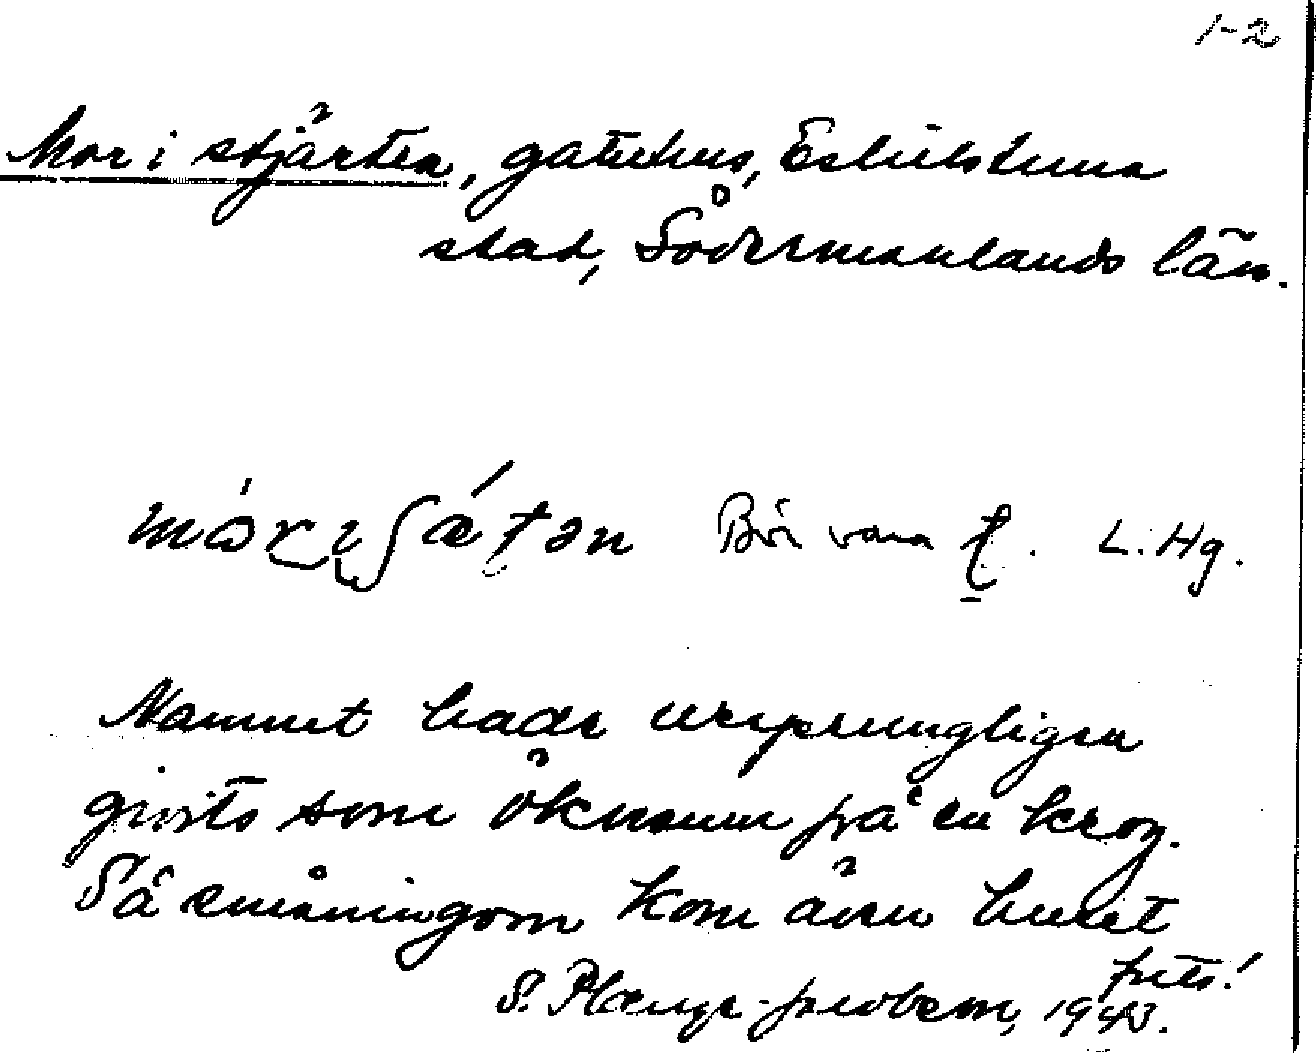 1-2
Mor i stjärten, gatuhus, Eskilstuna
stad, Södermanlands län.
Bör vara ţ. L. Hg.
Namnet hade ursprungligen
givits som öknamn på en krog.
Så småningom kom även huset
S. Plænge 1943.